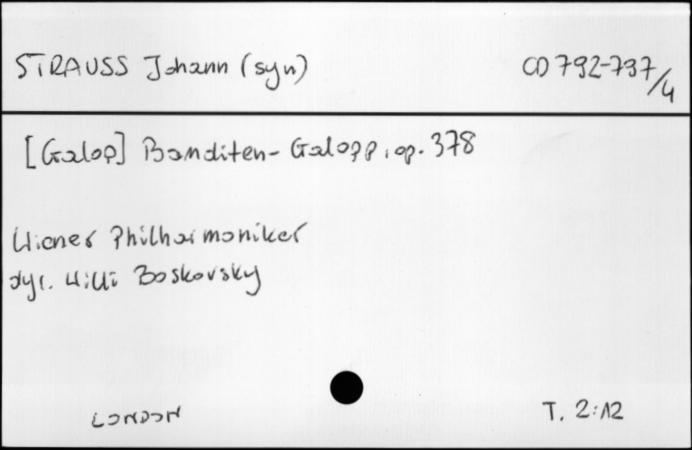 STRAUSS Johann (syn) CD 792-797/4
[Galop] Banditen-Galopp, op. 378
Wiener Philharmoniker
dyr. Willi Boskovsky
LONDON T. 2:12